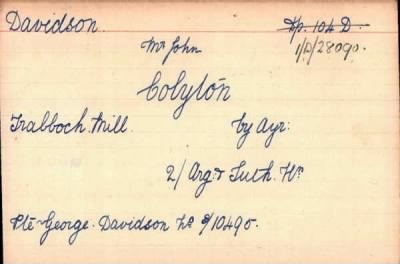 Davidson. Hp. 104 D.
Mr John 1/D/28090.
Colyton
Trabboch Mill. by Ayr:
2/ Arg: & Suth. Hrs
Pte George. Davidson No S/10490.